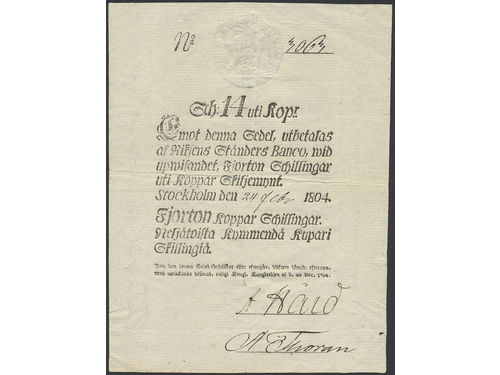 No 3063
Sch: 14 uti Kopr
Emot denna Sedel, utbetalas
af Riksens Ständers Banco, wid
upwisandet, Fjorton Schillingar
uti Koppar Skiljemynt.
Stockholm den 24 Febr 1804.
Fjorton Koppar Schillingar.
Neljätoista Kymmendä Kupari
Skillingiä.
Den som denna Sedel
A Hård
A Thoran